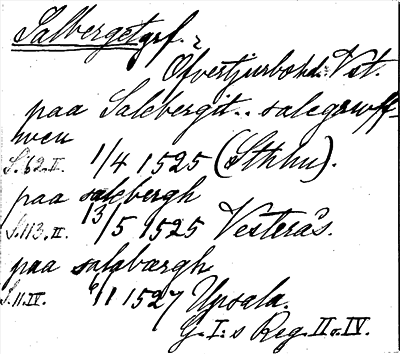 Salbergetgrf.
Öfvertjurbohd. Vst.
paa Salebergit.. salegruff-
wen
S. 62. II. 1/4 1525 (Sthlm).
paa salebergh
S. 113. II. 13/5 1525 Vesterås.
paa salabærgh
S. 11. IV. 6/1 1527 Upsala.
G. I:s Reg. II o. IV.